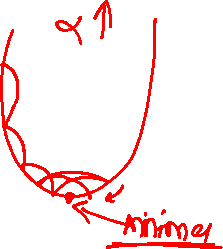 α ↑
minima